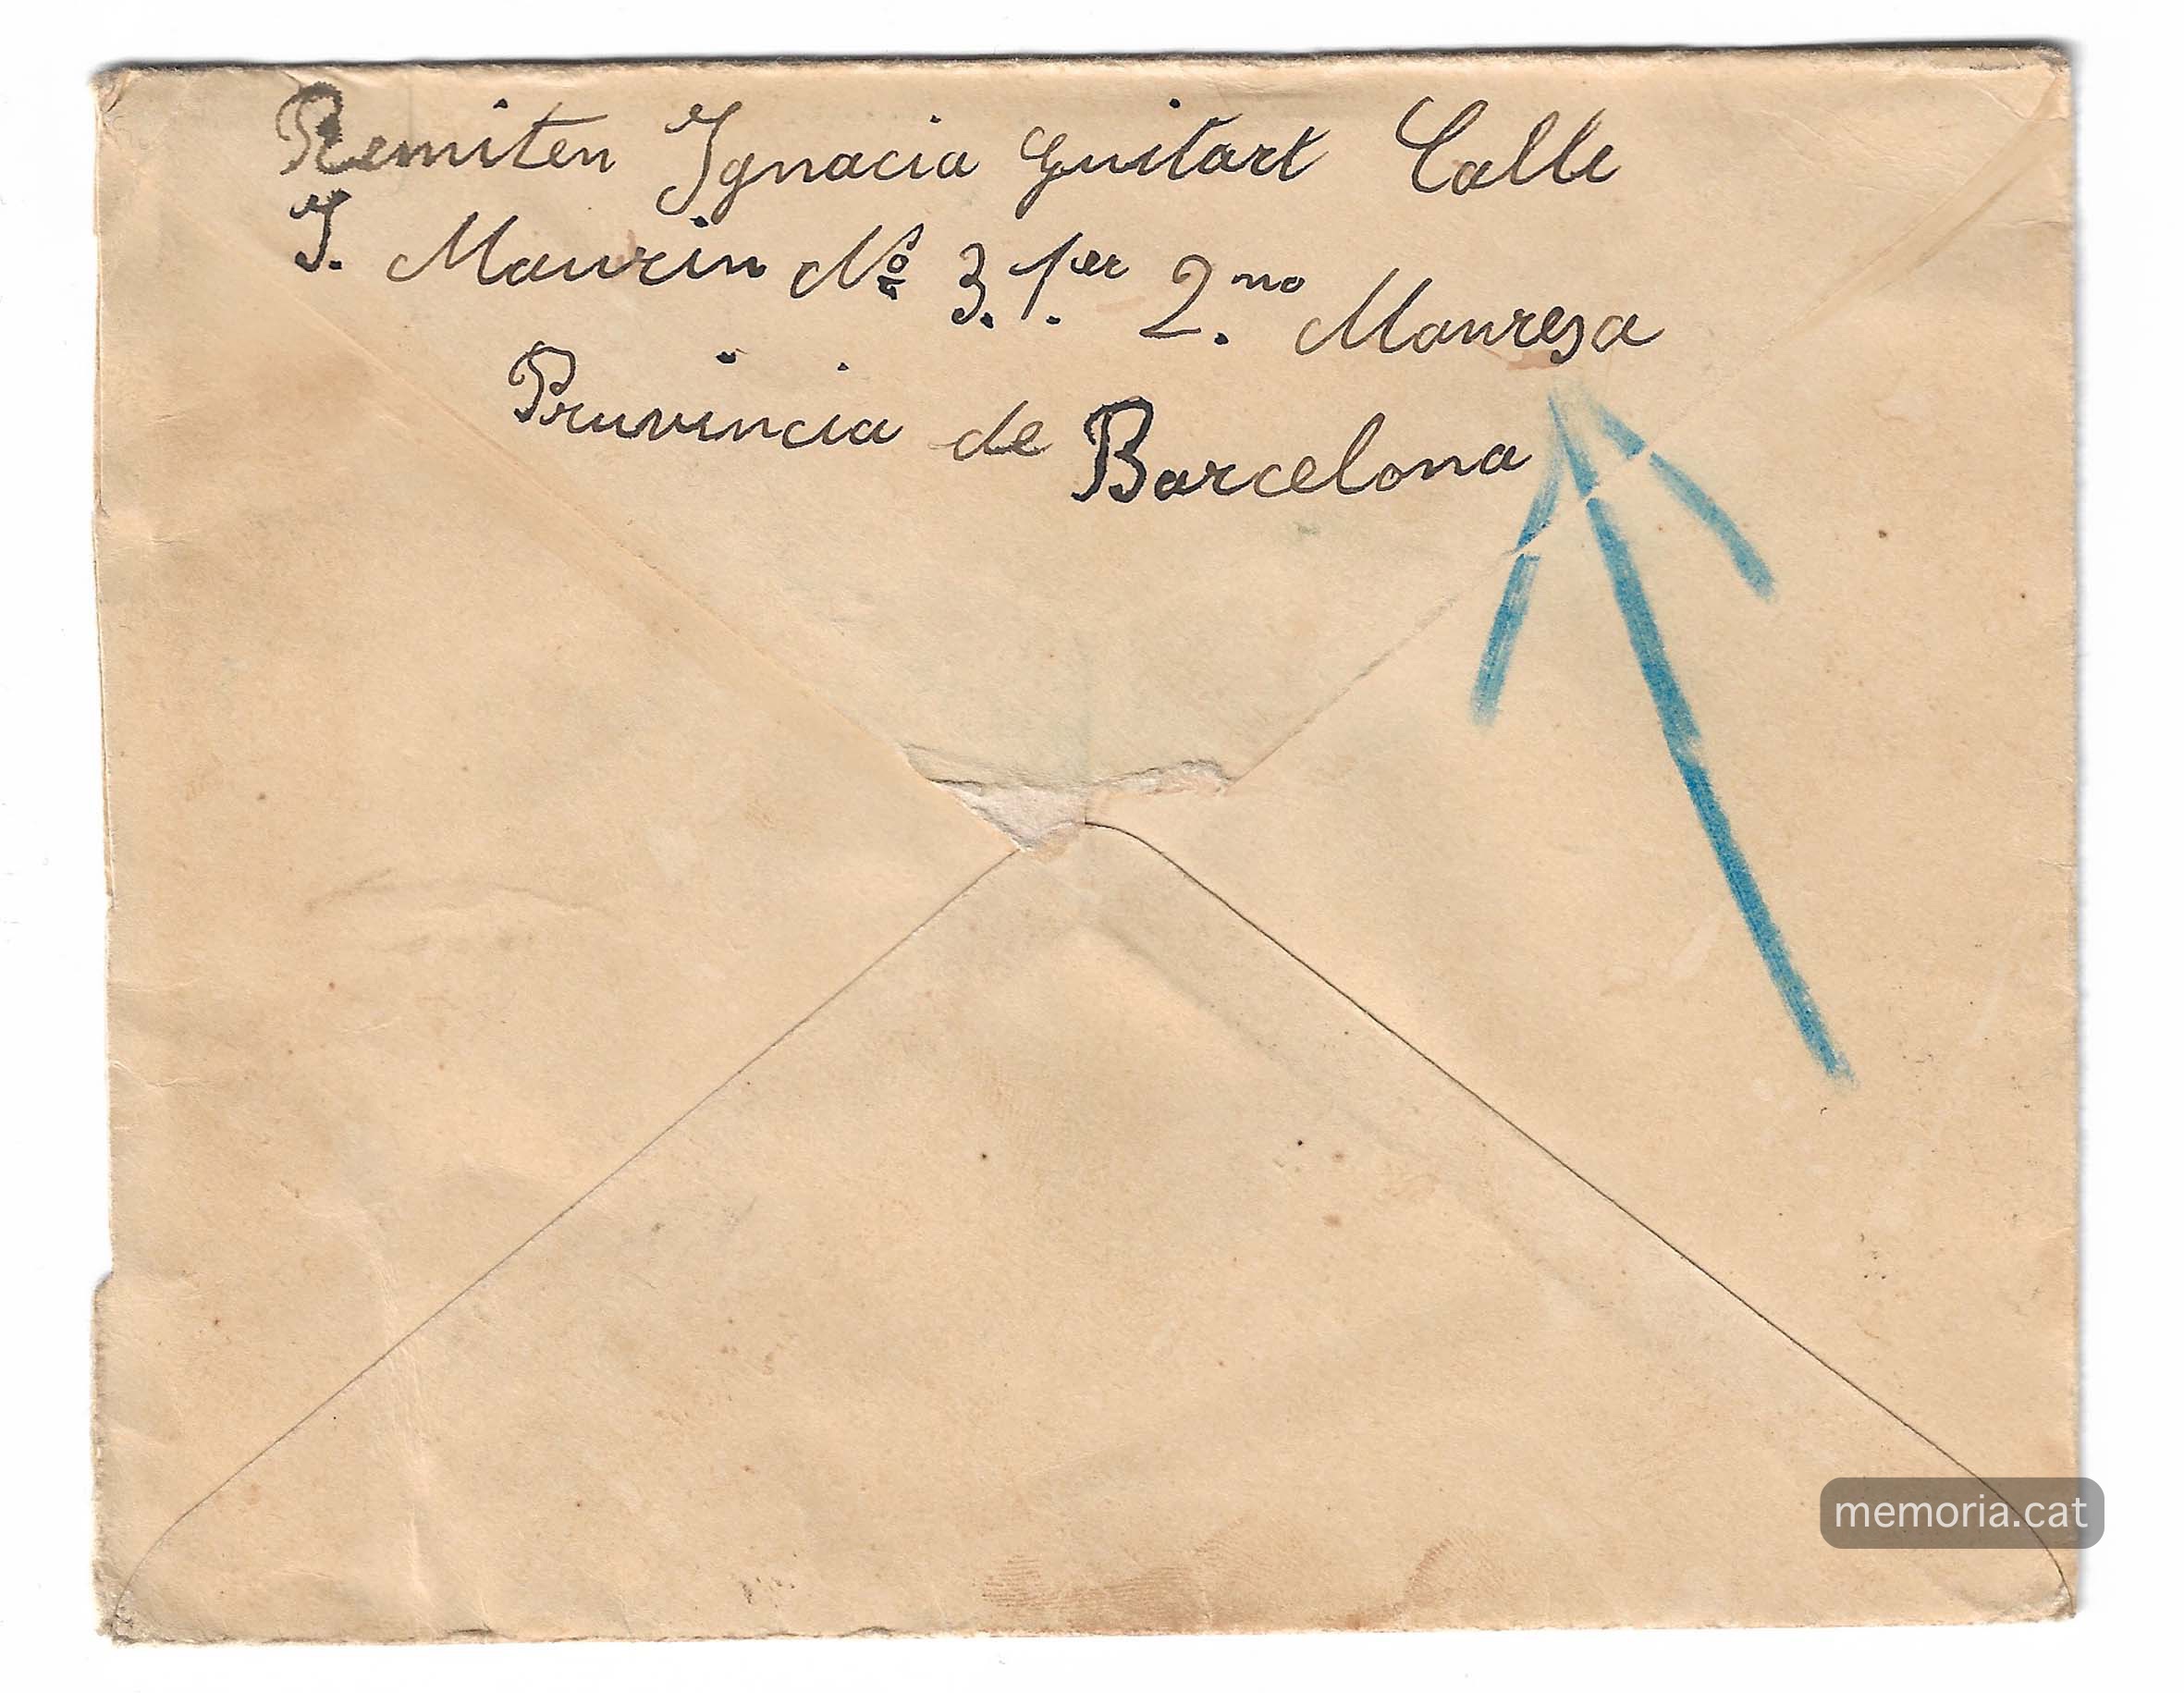 Remiten Ignacia Guitart Calle
J. Maurin Nº 3. 1.er 2.no Manresa
Pruvincia de Barcelona
memoria.cat